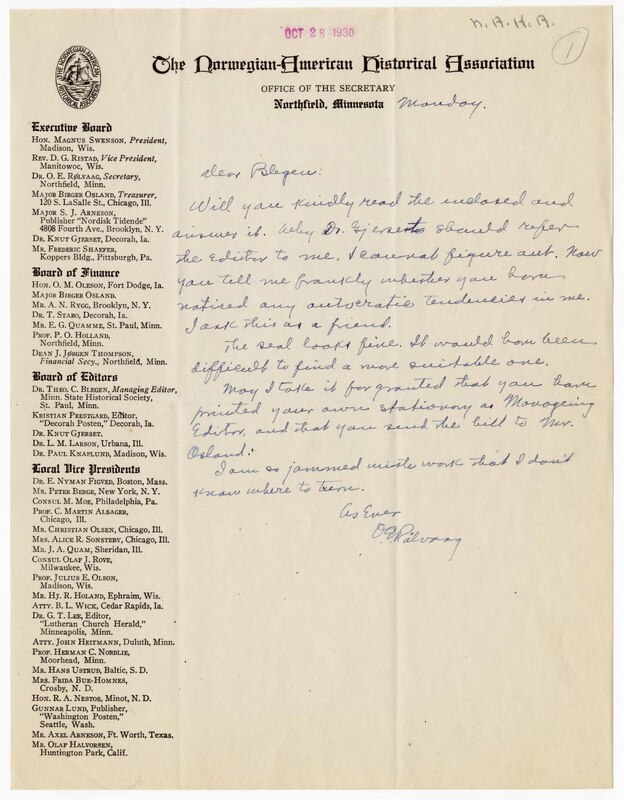 OCT 28 1930
N.A.H.A.
1
THE NORWEGIAN-AMERICAN HISTORICAL ASSOCIATION
The Norwegian-American Historical Association
OFFICE OF THE SECRETARY
Northfield, Minnesota
Monday.
Executive Board
HON. MAGNUS SWENSON, President,
Madison, Wis.
REV. D. G. RISTAD, Vice President,
Manitowoc, Wis.
DR. O. E. RØLVAAG, Secretary,
Northfield, Minn.
MAJOR BIRGER OSLAND, Treasurer,
120 S. LaSalle St., Chicago, Ill.
MAJOR S. J. ARNESON,
Publisher "Nordisk Tidende"
4808 Fourth Ave., Brooklyn, N. Y.
DR. KNUT GJERSET, Decorah, Ia.
MR. FREDERIC SHAEFER,
Koppers Bldg., Pittsburgh, Pa.
Board of Finance
HON. O. M. OLESON, Fort Dodge, Ia.
MAJOR BIRGER OSLAND.
MR. A. N. RYGG, Brooklyn, N. Y.
DR. T. STABO, Decorah, Ia.
MR. E. G. QUAMME, St. Paul, Minn.
PROF. P. O. HOLLAND,
Northfield, Minn.
DEAN J. JØRGEN THOMPSON,
Financial Secy., Northfield, Minn.
Board of Editors
DR. THEO. C. BLEGEN, Managing Editor,
Minn. State Historical Society,
St. Paul, Minn.
KRISTIAN PRESTGARD, Editor,
"Decorah Posten," Decorah, Ia.
DR. KNUT GJERSET.
DR. L. M. LARSON, Urbana, Ill.
DR. PAUL KNAPLUND, Madison, Wis.
Local Vice Presidents
DR. E. NYMAN FIGVED, Boston, Mass.
MR. PETER BERGE, New York, N. Y.
CONSUL M. MOE, Philadelphia, Pa.
PROF. C. MARTIN ALSAGER,
Chicago, Ill.
MR. CHRISTIAN OLSEN, Chicago, Ill.
MRS. ALICE R. SONSTEBY, Chicago, Ill.
MR. J. A. QUAM, Sheridan, Ill.
CONSUL OLAF J. ROVE,
Milwaukee, Wis.
PROF. JULIUS E. OLSON,
Madison, Wis.
MR. HJ. R. HOLAND, Ephraim, Wis.
ATTY. B. L. WICK, Cedar Rapids, Ia.
DR. G. T. LEE, Editor,
"Lutheran Church Herald,"
Minneapolis, Minn.
ATTY. JOHN HEITMANN, Duluth, Minn.
PROF. HERMAN C. NORDLIE,
Moorhead, Minn.
MR. HANS USTRUD, Baltic, S. D.
MRS. FRIDA BUE-HOMNES,
Crosby, N. D.
HON. R. A. NESTOS, Minot, N. D.
GUNNAR LUND, Publisher,
"Washington Posten,"
Seattle, Wash.
MR. AXEL ARNESON, Ft. Worth, Texas.
MR. OLAF HALVORSEN,
Huntington Park, Calif.
Dear Blegen:
Will you kindly read the enclosed and
answer it. Why Dr. Gjerset should refer
the Editor to me, I cannot figure out. Now
you tell me frankly whether you have
noticed any autocratic tendencies in me.
I ask this as a friend.
The seal looks fine. It would have been
difficult to find a more suitable one.
May I take it for granted that you have
printed your own stationary as Manageing
Editor, and that you send the bill to Mr.
Osland?
I am so jammed with work that I don't
know where to turn.
As Ever
O E Rölvaag